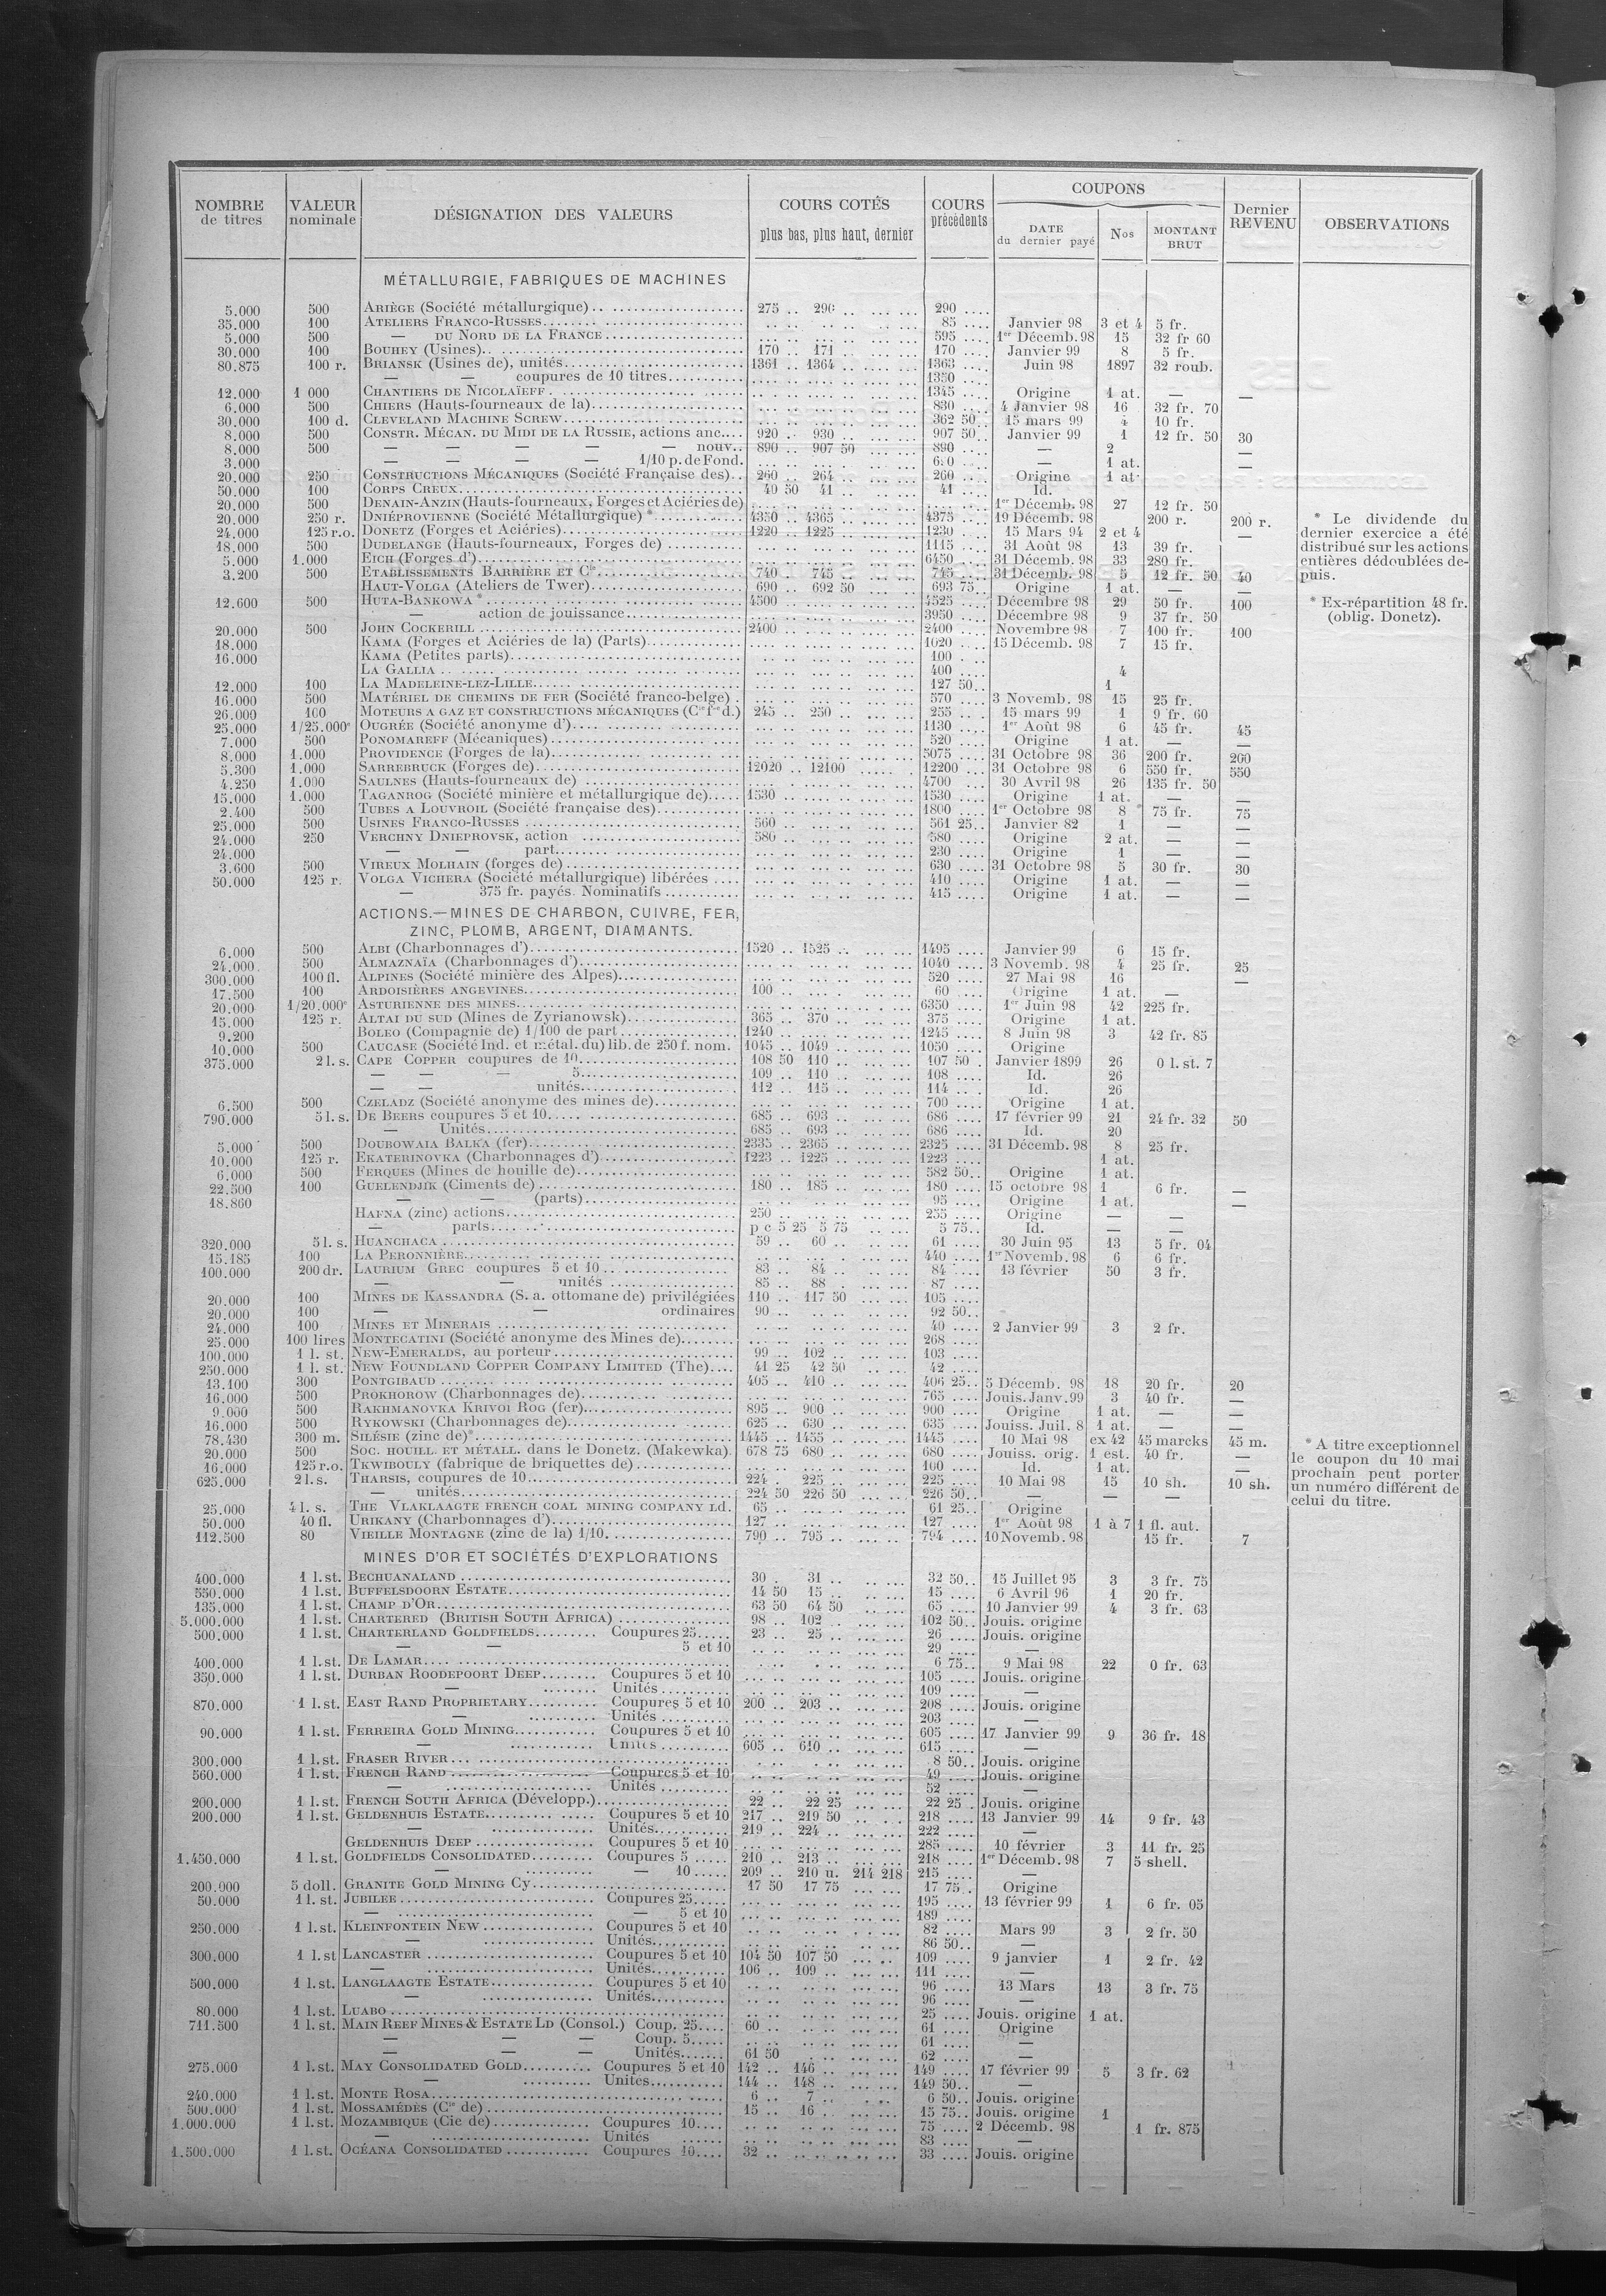 NOMBRE de titres | VALEUR nominale | DÉSIGNATION DES VALEURS | COURS COTÉS plus bas, plus haut, dernier | COURS précédents | COUPONS DATE du dernier payé | Nos | MONTANT BRUT | Dernier REVENU | OBSERVATIONS
MÉTALLURGIE, FABRIQUES DE MACHINES
5.000 500 ARIÈGE (Société métallurgique) 275 .. 290 .. 290
35.000 100 ATELIERS FRANCO-RUSSES 85 Janvier 98 3 et 4 5 fr.
5.000 500 — DU NORD DE LA FRANCE 595 1er Décemb. 98 15 32 fr 60
30.000 100 BOUHEY (Usines) 170 .. 171 .. 170 Janvier 99 8 5 fr.
80.875 100 r. BRIANSK (Usines de), unités 1361 .. 1364 .. 1363 Juin 98 1897 32 roub.
— — coupures de 10 titres 1350
12.000 1 000 CHANTIERS DE NICOLAÏEFF 1345 Origine 1 at. — —
6.000 500 CHIERS (Hauts-fourneaux de la) 830 4 Janvier 98 16 32 fr. 70
30.000 100 d. CLEVELAND MACHINE SCREW 362 50 15 mars 99 4 10 fr.
8.000 500 CONSTR. MÉCAN. DU MIDI DE LA RUSSIE, actions anc. 920 .. 930 .. 907 50 Janvier 99 1 12 fr. 50 30
8.000 500 — — — — — nouv. 890 .. 907 50 890 — 2 —
3.000 — — — — 1/10 p. de Fond. — 1 at. —
20.000 250 CONSTRUCTIONS MÉCANIQUES (Société Française des) 260 .. 264 .. 260 Origine 1 at
50.000 100 CORPS CREUX 40 50 41 .. 41 Id.
20.000 DENAIN-ANZIN (Hauts-fourneaux, Forges et Aciéries de) 1er Décemb. 98 27 12 fr. 50
20.000 250 r. DNIÉPROVIENNE (Société Métallurgique) * 4350 .. 4365 .. 4375 19 Décemb. 98 200 r. 200 r.
* Le dividende du dernier exercice a été distribué sur les actions entières dédoublées depuis.
24.000 125 r.o. DONETZ (Forges et Aciéries) 1220 .. 1225 .. 1230 15 Mars 94 2 et 4 —
18.000 500 DUDELANGE (Hauts-fourneaux, Forges de) 1115 31 Août 98 13 39 fr.
5.000 1.000 EICH (Forges d') 6450 31 Décemb. 98 33 280 fr.
3.200 500 ETABLISSEMENTS BARRIÈRE ET Cie 740 .. 745 .. 745 31 Décemb. 98 5 12 fr. 50 40
HAUT-VOLGA (Ateliers de Twer) 690 .. 692 50 693 75 Origine 1 at. — —
12.600 500 HUTA-BANKOWA * 4500 4525 Décembre 98 29 50 fr. 100
* Ex-répartition 48 fr. (oblig. Donetz).
— action de jouissance 3950 Décembre 98 9 37 fr. 50
20.000 500 JOHN COCKERILL 2400 2400 Novembre 98 7 100 fr. 100
18.000 KAMA (Forges et Aciéries de la) (Parts) 1020 15 Décemb. 98 7 15 fr.
16.000 KAMA (Petites parts) 100
LA GALLIA 400 4
12.000 100 LA MADELEINE-LEZ-LILLE 127 50 1
16.000 500 MATÉRIEL DE CHEMINS DE FER (Société franco-belge) 570 3 Novemb. 98 15 25 fr.
26.000 100 MOTEURS A GAZ ET CONSTRUCTIONS MÉCANIQUES (Cie fse d.) 245 .. 250 .. 255 15 mars 99 1 9 fr. 60
25.000 1/25.000e OUGRÉE (Société anonyme d') 1130 1er Août 98 6 45 fr. 45
7.000 500 PONOMAREFF (Mécaniques) 520 Origine 1 at. — —
8.000 1.000 PROVIDENCE (Forges de la) 5075 31 Octobre 98 36 200 fr. 200
5.300 1.000 SARREBRUCK (Forges de) 12020 .. 12100 12200 31 Octobre 98 6 550 fr. 550
4.250 1.000 SAULNES (Hauts-fourneaux de) 4700 30 Avril 98 26 135 fr. 50
15.000 1.000 TAGANROG (Société minière et métallurgique de) 1530 1530 Origine 1 at. — —
2.400 500 TUBES A LOUVROIL (Société française des) 1800 1er Octobre 98 8 75 fr. 75
25.000 500 USINES FRANCO-RUSSES 560 561 25 Janvier 82 1 — —
24.000 250 VERCHNY DNIEPROVSK, action 580 580 Origine 2 at. — —
24.000 — — part 230 Origine 1 — —
3.600 500 VIREUX MOLHAIN (forges de) 630 31 Octobre 98 5 30 fr. 30
50.000 125 r. VOLGA VICHERA (Société métallurgique) libérées 410 Origine 1 at. — —
— 375 fr. payés. Nominatifs 415 Origine 1 at. — —
ACTIONS.—MINES DE CHARBON, CUIVRE, FER,
ZINC, PLOMB, ARGENT, DIAMANTS.
6.000 500 ALBI (Charbonnages d') 1520 .. 1525 .. 1495 Janvier 99 6 15 fr.
24.000 500 ALMAZNAÏA (Charbonnages d') 1040 3 Novemb. 98 4 25 fr. 25
300.000 100 fl. ALPINES (Société minière des Alpes) 520 27 Mai 98 16 —
17.500 100 ARDOISIÈRES ANGEVINES 100 60 Origine 1 at. —
20.000 1/20.000e ASTURIENNE DES MINES 6350 1er Juin 98 42 225 fr.
15.000 125 r. ALTAI DU SUD (Mines de Zyrianowsk) 365 .. 370 .. 375 Origine 1 at.
9.200 BOLEO (Compagnie de) 1/100 de part 1240 1245 8 Juin 98 3 42 fr. 85
10.000 500 CAUCASE (Société Ind. et métal. du) lib. de 250 f. nom. 1045 .. 1049 .. 1050 Origine
375.000 2 l. s. CAPE COPPER coupures de 10 108 50 110 .. 107 50 Janvier 1899 26 0 l. st. 7
— — — 5 109 .. 110 .. 108 Id. 26
— — unités 112 .. 115 .. 114 Id. 26
6.500 500 CZELADZ (Société anonyme des mines de) 700 Origine 1 at.
790.000 5 l. s. DE BEERS coupures 5 et 10 685 .. 693 .. 686 17 février 99 21 24 fr. 32 50
— Unités 685 .. 693 .. 686 Id. 20
5.000 500 DOUBOWAIA BALKA (fer) 2335 .. 2365 .. 2325 31 Décemb. 98 8 25 fr.
10.000 125 r. EKATERINOVKA (Charbonnages d') 1223 .. 1225 .. 1223 1 at.
6.000 500 FERQUES (Mines de houille de) 582 50 Origine 1 at.
22.500 100 GUELENDJIK (Ciments de) 180 .. 185 .. 180 15 octobre 98 1 6 fr. —
18.860 — — (parts) 95 Origine 1 at. — —
HAFNA (zinc) actions 250 255 Origine — —
— parts p c 5 25 5 75 5 75 Id. — —
320.000 5 l. s. HUANCHACA 59 .. 60 .. 61 30 Juin 95 13 5 fr. 04
15.185 100 LA PERONNIÈRE 440 1er Novemb. 98 6 6 fr.
100.000 200 dr. LAURIUM GREC coupures 5 et 10 83 .. 84 .. 84 13 février 50 3 fr.
— — unités 85 .. 88 .. 87
20.000 100 MINES DE KASSANDRA (S. a. ottomane de) privilégiées 110 .. 117 50 105
20.000 100 — — ordinaires 90 92 50
24.000 100 MINES ET MINERAIS 40 2 Janvier 99 3 2 fr.
25.000 100 lires MONTECATINI (Société anonyme des Mines de) 268
100.000 1 l. st. NEW-EMERALDS, au porteur 99 .. 102 .. 103
250.000 1 l. st. NEW FOUNDLAND COPPER COMPANY LIMITED (The) 41 25 42 50 42
13.100 300 PONTGIBAUD 405 .. 410 .. 406 25 5 Décemb. 98 18 20 fr. 20
16.000 500 PROKHOROW (Charbonnages de) 765 Jouis. Janv. 99 3 40 fr. —
9.000 500 RAKHMANOVKA KRIVOI ROG (fer) 895 .. 900 .. 900 Origine 1 at. — —
16.000 500 RYKOWSKI (Charbonnages de) 625 .. 630 .. 635 Jouiss. Juil. 8 1 at. — —
78.430 300 m. SILÉSIE (zinc de)* 1445 .. 1455 .. 1445 10 Mai 98 ex 42 45 marcks 45 m.
* A titre exceptionnel le coupon du 10 mai prochain peut porter un numéro différent de celui du titre.
20.000 500 SOC. HOUILL. ET MÉTALL. dans le Donetz. (Makewka) 678 75 680 .. 680 Jouiss. orig. 1 est. 40 fr. —
16.000 125 r.o. TKWIBOULY (fabrique de briquettes de) 100 Id. 1 at. —
625.000 2 l. s. THARSIS, coupures de 10 224 . 225 .. 225 10 Mai 98 15 10 sh. 10 sh.
— unités 224 50 226 50 226 50 — — —
25.000 4 l. s. THE VLAKLAAGTE FRENCH COAL MINING COMPANY Ld. 65 61 25 Origine
50.000 40 fl. URIKANY (Charbonnages d') 127 127 1er Août 98 1 à 7 1 fl. aut.
112.500 80 VIEILLE MONTAGNE (zinc de la) 1/10 790 .. 795 .. 794 10 Novemb. 98 15 fr. 7
MINES D'OR ET SOCIÉTÉS D'EXPLORATIONS
400.000 1 l. st. BECHUANALAND 30 . 31 .. 32 50 15 Juillet 95 3 3 fr. 75
550.000 1 l. st. BUFFELSDOORN ESTATE 14 50 15 .. 15 6 Avril 96 1 20 fr.
135.000 1 l. st. CHAMP D'OR 63 50 64 50 65 10 Janvier 99 4 3 fr. 63
5.000.000 1 l. st. CHARTERED (BRITISH SOUTH AFRICA) 98 .. 102 .. 102 50 Jouis. origine
500.000 1 l. st. CHARTERLAND GOLDFIELDS Coupures 25 23 .. 25 .. 26 Jouis. origine
— — 5 et 10 29 —
400.000 1 l. st. DE LAMAR 6 75 9 Mai 98 22 0 fr. 63
350.000 1 l. st. DURBAN ROODEPOORT DEEP Coupures 5 et 10 105 Jouis. origine
— Unités 109 —
870.000 1 l. st. EAST RAND PROPRIETARY Coupures 5 et 10 200 .. 203 .. 208 Jouis. origine
— Unités 203 —
90.000 1 l. st. FERREIRA GOLD MINING Coupures 5 et 10 605 17 Janvier 99 9 36 fr. 18
— Unités 605 .. 610 .. 615 —
300.000 1 l. st. FRASER RIVER 8 50 Jouis. origine
560.000 1 l. st. FRENCH RAND Coupures 5 et 10 49 Jouis. origine
— Unités 52 —
200.000 1 l. st. FRENCH SOUTH AFRICA (Développ.) 22 .. 22 25 22 25 Jouis. origine
200.000 1 l. st. GELDENHUIS ESTATE Coupures 5 et 10 217 .. 219 50 218 13 Janvier 99 14 9 fr. 43
— Unités 219 .. 224 .. 222 —
GELDENHUIS DEEP Coupures 5 et 10 285 10 février 3 11 fr. 25
1.450.000 1 l. st. GOLDFIELDS CONSOLIDATED Coupures 5 210 .. 213 .. 218 1er Décemb. 98 7 5 shell.
— — 10 209 .. 210 u. 214 218 215 —
200.000 5 doll. GRANITE GOLD MINING Cy 17 50 17 75 17 75 Origine
50.000 1 l. st. JUBILEE Coupures 25 195 13 février 99 1 6 fr. 05
— — 5 et 10 189
250.000 1 l. st. KLEINFONTEIN NEW Coupures 5 et 10 82 Mars 99 3 2 fr. 50
— Unités 86 50 —
300.000 1 l. st LANCASTER Coupures 5 et 10 104 50 107 50 109 9 janvier 1 2 fr. 42
— Unités 106 .. 109 .. 111 —
500.000 1 l. st. LANGLAAGTE ESTATE Coupures 5 et 10 96 13 Mars 13 3 fr. 75
— Unités 96 —
80.000 1 l. st. LUABO 25 Jouis. origine 1 at.
711.500 1 l. st. MAIN REEF MINES & ESTATE LD (Consol.) Coup. 25 60 61 Origine
— — — Coup. 5 61 —
— — — Unités 61 50 62 —
275.000 1 l. st. MAY CONSOLIDATED GOLD Coupures 5 et 10 142 .. 146 .. 149 17 février 99 5 3 fr. 62
— Unités 144 .. 148 .. 149 50 —
240.000 1 l. st. MONTE ROSA 6 .. 7 .. 6 50 Jouis. origine
500.000 1 l. st. MOSSAMÉDÈS (Cie de) 15 .. 16 .. 15 75 Jouis. origine 1
1.000.000 1 l. st. MOZAMBIQUE (Cie de) Coupures 10 75 2 Décemb. 98 1 fr. 875
— Unités 83 —
1.500.000 1 l. st. OCÉANA CONSOLIDATED Coupures 10 32 33 Jouis. origine